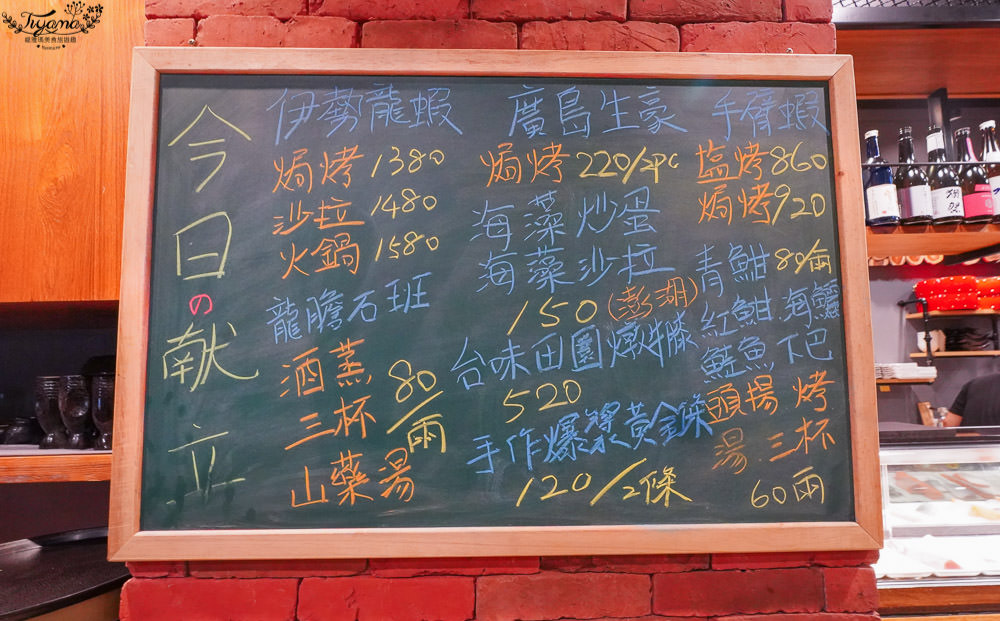 Tiyama
緹雅瑪美食旅遊趣
今日の献立
伊勢龍蝦
焗烤1380
沙拉1480
火鍋1580
龍膽石班
酒蒸
三杯
山藥湯
80/兩
廣島生豪
焗烤220/PC
海藻炒蛋
海藻沙拉
150(澎湖)
台味田園燉牛膝
520
手作爆漿黃金條
120/2條
手臂蝦
塩烤860
焗烤920
青魽80/兩
紅魽.海鱺
鮭魚下巴
頭揚烤
湯.三杯
60兩